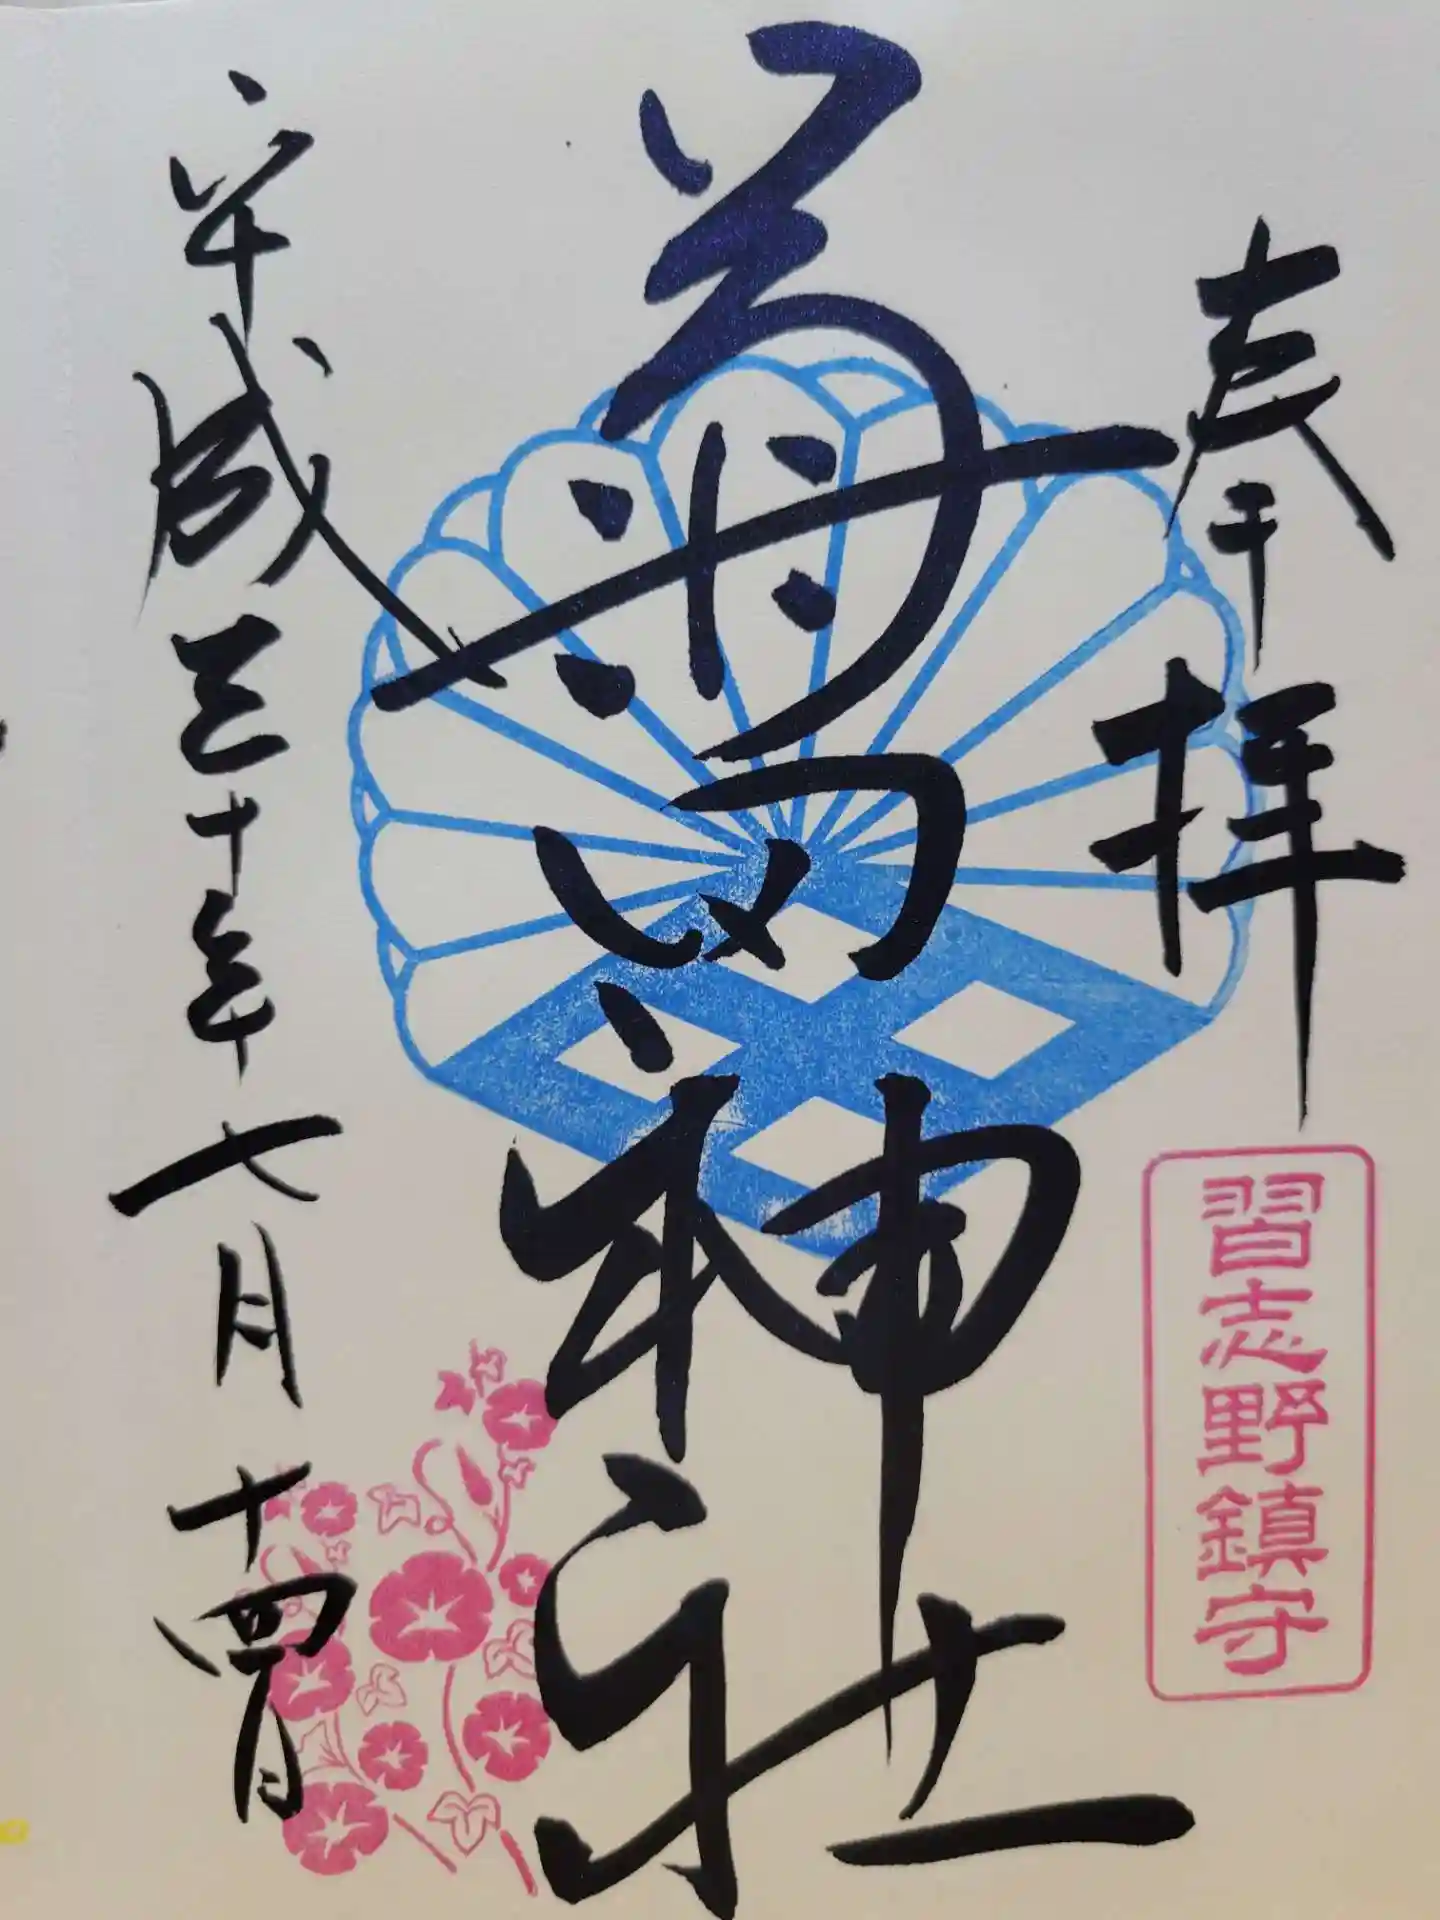 奉拝
習志野鎮守
菊田神社
平成三十年七月十四日